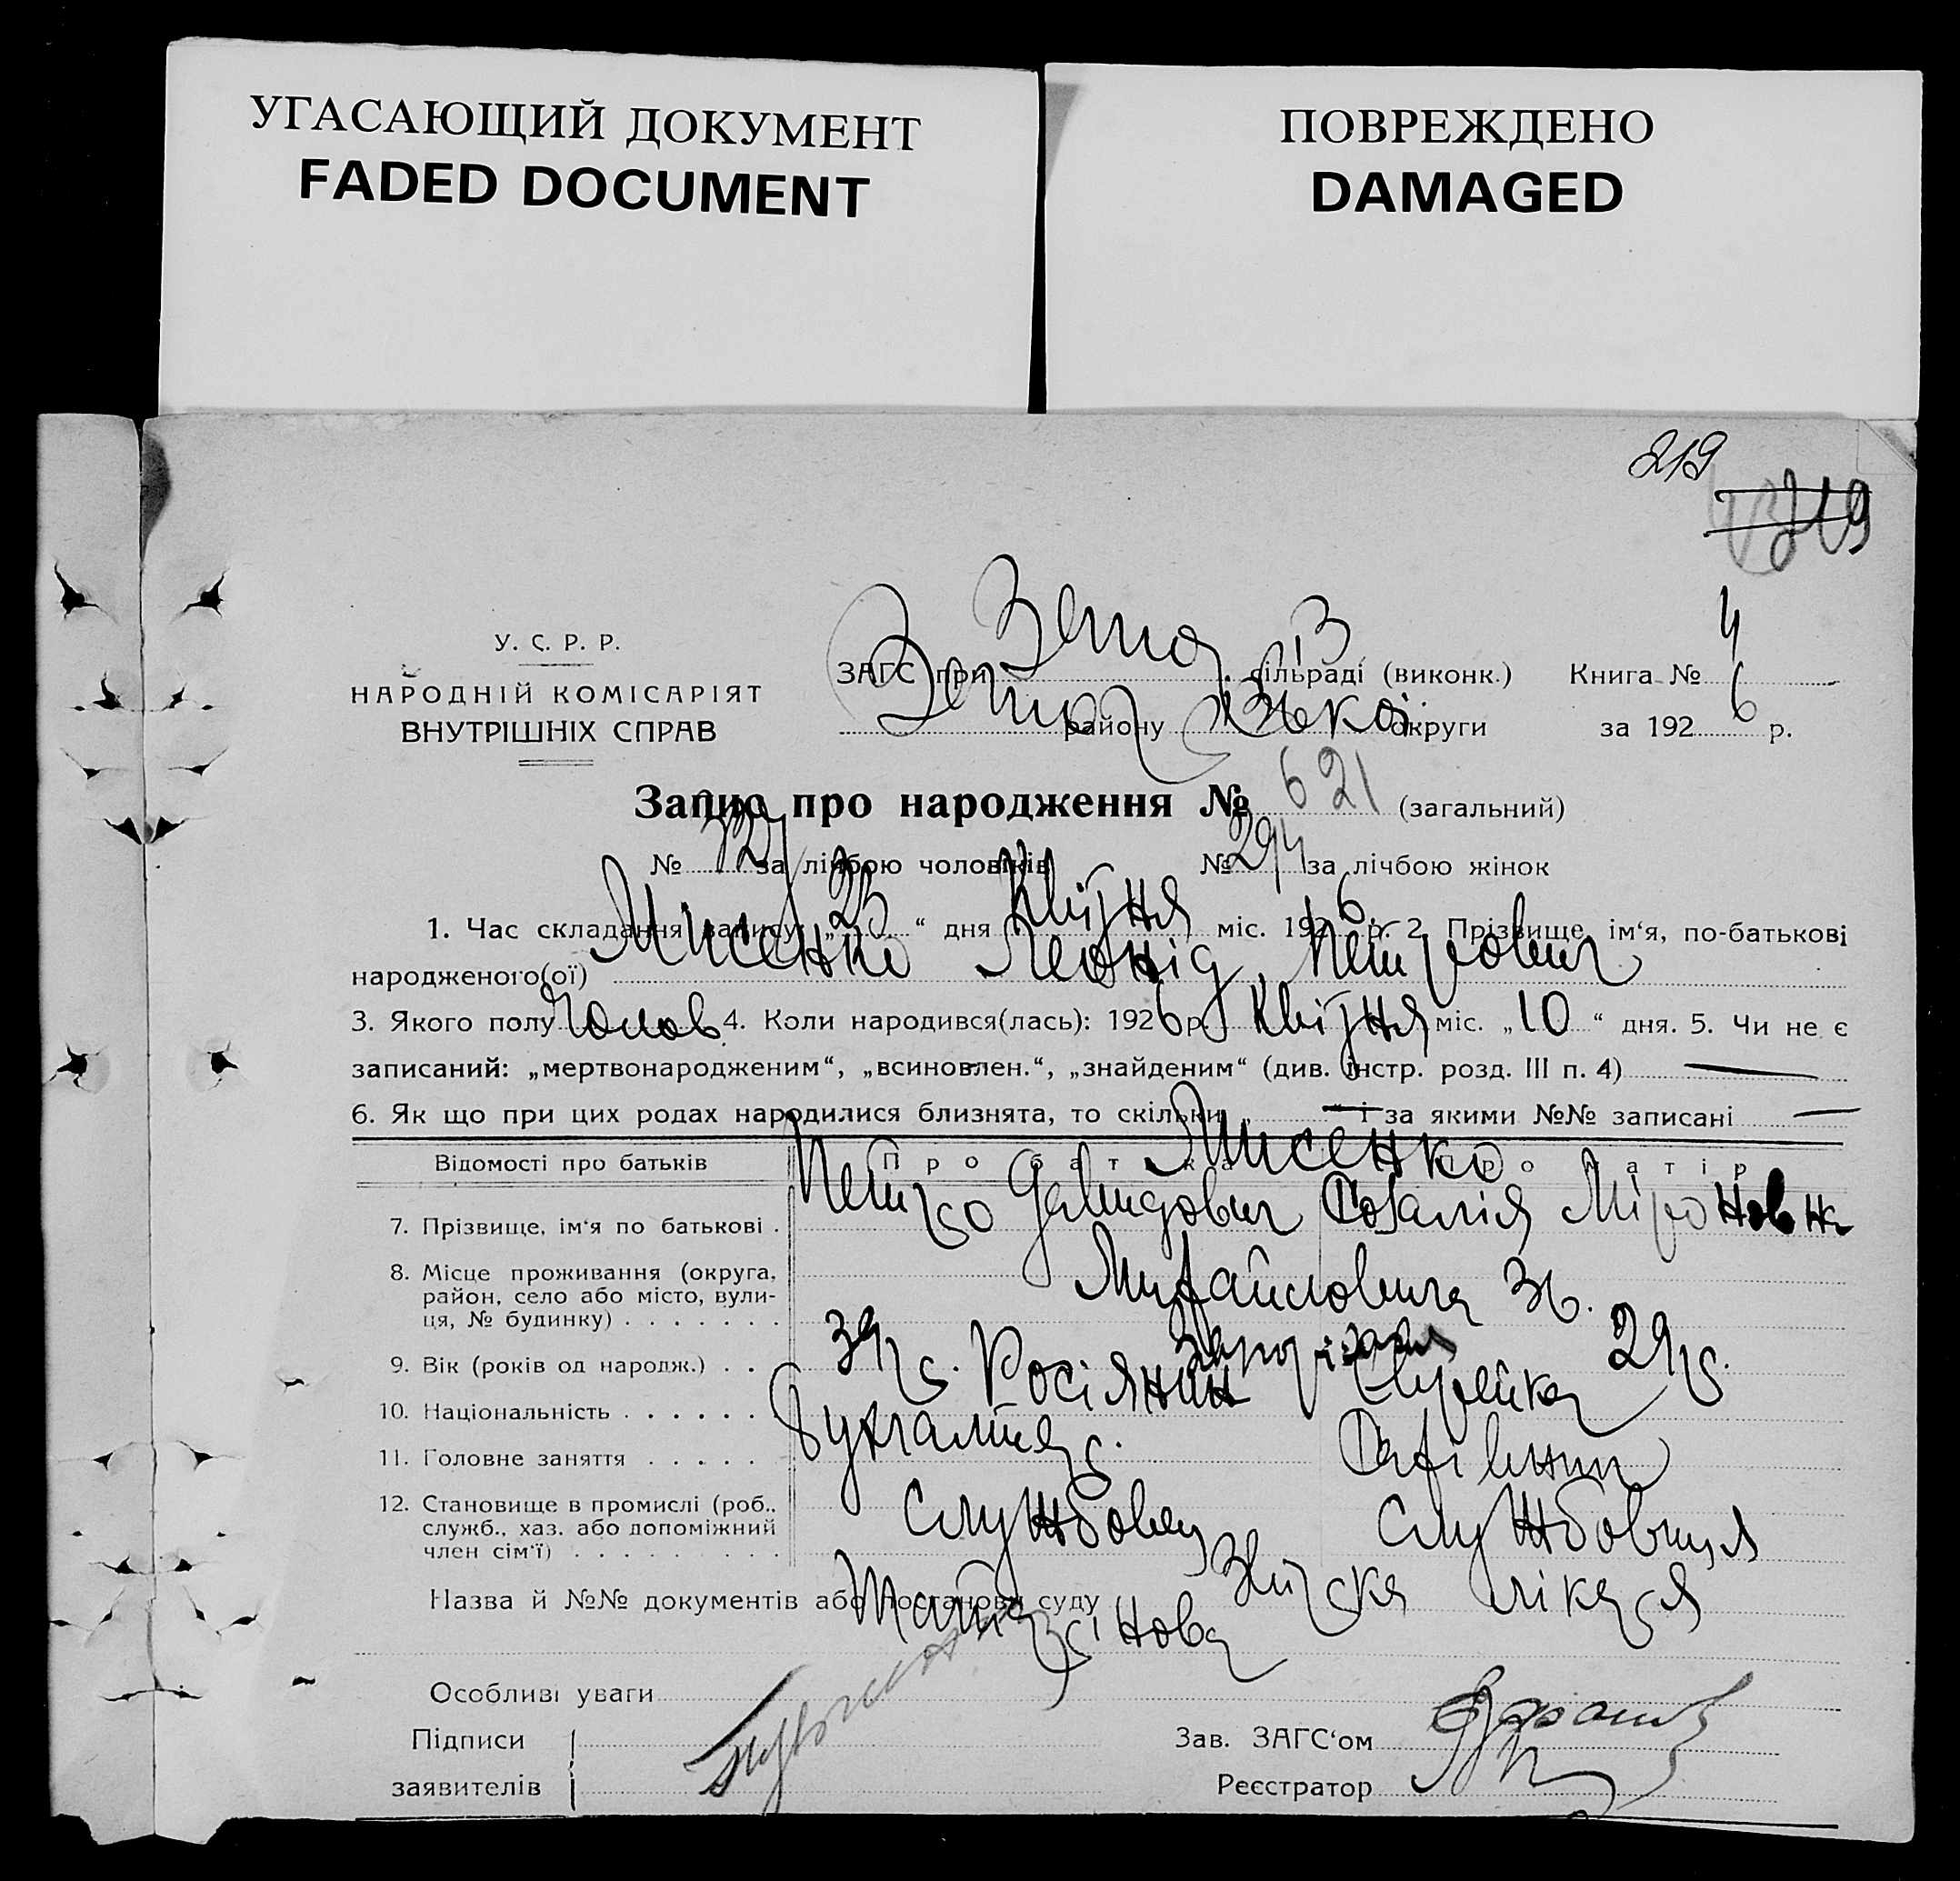 УГАСАЮЩИЙ ДОКУМЕНТ
FADED DOCUMENT
ПОВРЕЖДЕНО
DAMAGED
219
У. С. Р. Р.
НАРОДНІЙ КОМІСАРІЯТ
ВНУТРІШНІХ СПРАВ
ЗАГС при сільраді (виконк.) Книга № 4
району округи за 1926 р.
Запис про народження № 621 (загальний)
№ 327 за лічбою чоловіків № 294 за лічбою жінок
1. Час складання запису: „23“ дня Квітня міс. 1926 р. 2. Прізвище, ім‘я, по-батькові
народженого(ої) Лисенко Леонід Петрович
3. Якого полу Чолов 4. Коли народився(лась): 1926 р. Квітня міс. „10“ дня. 5. Чи не є
записаний: „мертвонародженим“, „всиновлен.“, „знайденим“ (див. інстр. розд. III п. 4) —
6. Як що при цих родах народилися близнята, то скільки „—“ і за якими №№ записані —
Відомості про батьків Про батька Про матір
Лисенко
7. Прізвище, ім‘я по батькові . Петро Давидович Розалія Міроновна
8. Місце проживання (округа,
район, село або місто, вули-
ця, № будинку) . . . . . . . Михайловича 36.
9. Вік (років од народж.) . . 39 р. 29 р.
10. Національність . . . . . . Росіянин Єврейка
11. Головне заняття . . . . . Бухгалтер.
12. Становище в промислі (роб.,
служб., хаз. або допоміжний
член сім‘ї) . . . . . . . . . Службовец Службовиця
Назва й №№ документів або постанови суду лікаря
Особливі уваги
Підписи
заявителів
Зав. ЗАГС‘ом
Реєстратор